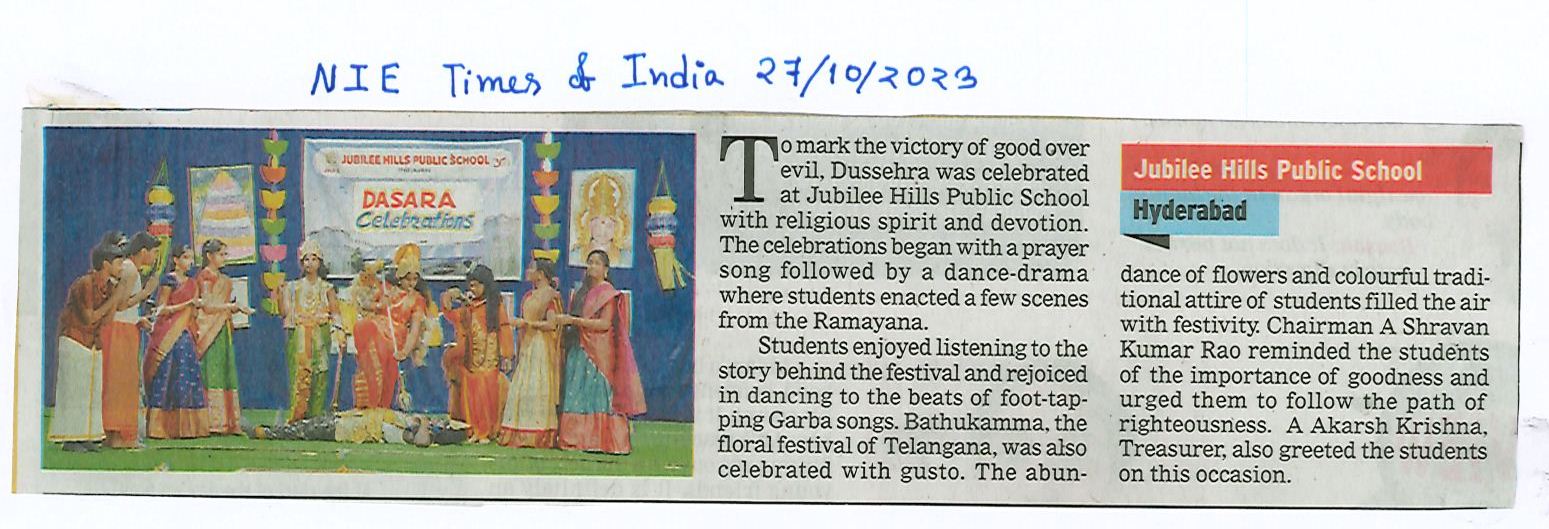 NIE Times of India 27/10/2023
JUBILEE HILLS PUBLIC SCHOOL
DASARA
Celebrations
To mark the victory of good over
evil, Dussehra was celebrated
at Jubilee Hills Public School
with religious spirit and devotion.
The celebrations began with a prayer
song followed by a dance-drama
where students enacted a few scenes
from the Ramayana.
Students enjoyed listening to the
story behind the festival and rejoiced
in dancing to the beats of foot-tap-
ping Garba songs. Bathukamma, the
floral festival of Telangana, was also
celebrated with gusto. The abun-
Jubilee Hills Public School
Hyderabad
dance of flowers and colourful tradi-
tional attire of students filled the air
with festivity. Chairman A Shravan
Kumar Rao reminded the students
of the importance of goodness and
urged them to follow the path of
righteousness. A Akarsh Krishna,
Treasurer, also greeted the students
on this occasion.